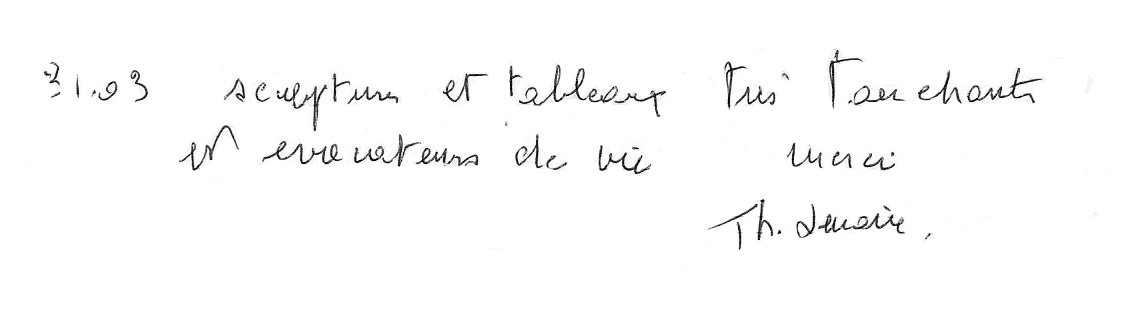 31.03 sculptures et tableaux très touchants
et evocateurs de vie merci
Th. Lemaire.